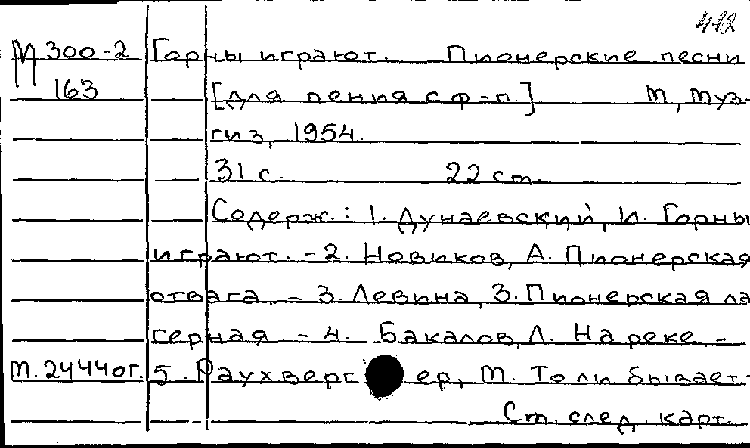 412
М 300-2 Горны играют. Пионерские песни
163 [для пения с ф-п.] М, Муз-
гиз, 1954.
31 с. 22 см.
Содерж.: 1. Дунаевский, И. Горны
играют. - 2. Новиков, А. Пионерская
отвага. - 3. Левина, З. Пионерская ла-
герная - 4. Бакалов, Л. На реке. -
М. 24440г. 5. Раухверг ер, М. То ли бывает-
См. след. карт.